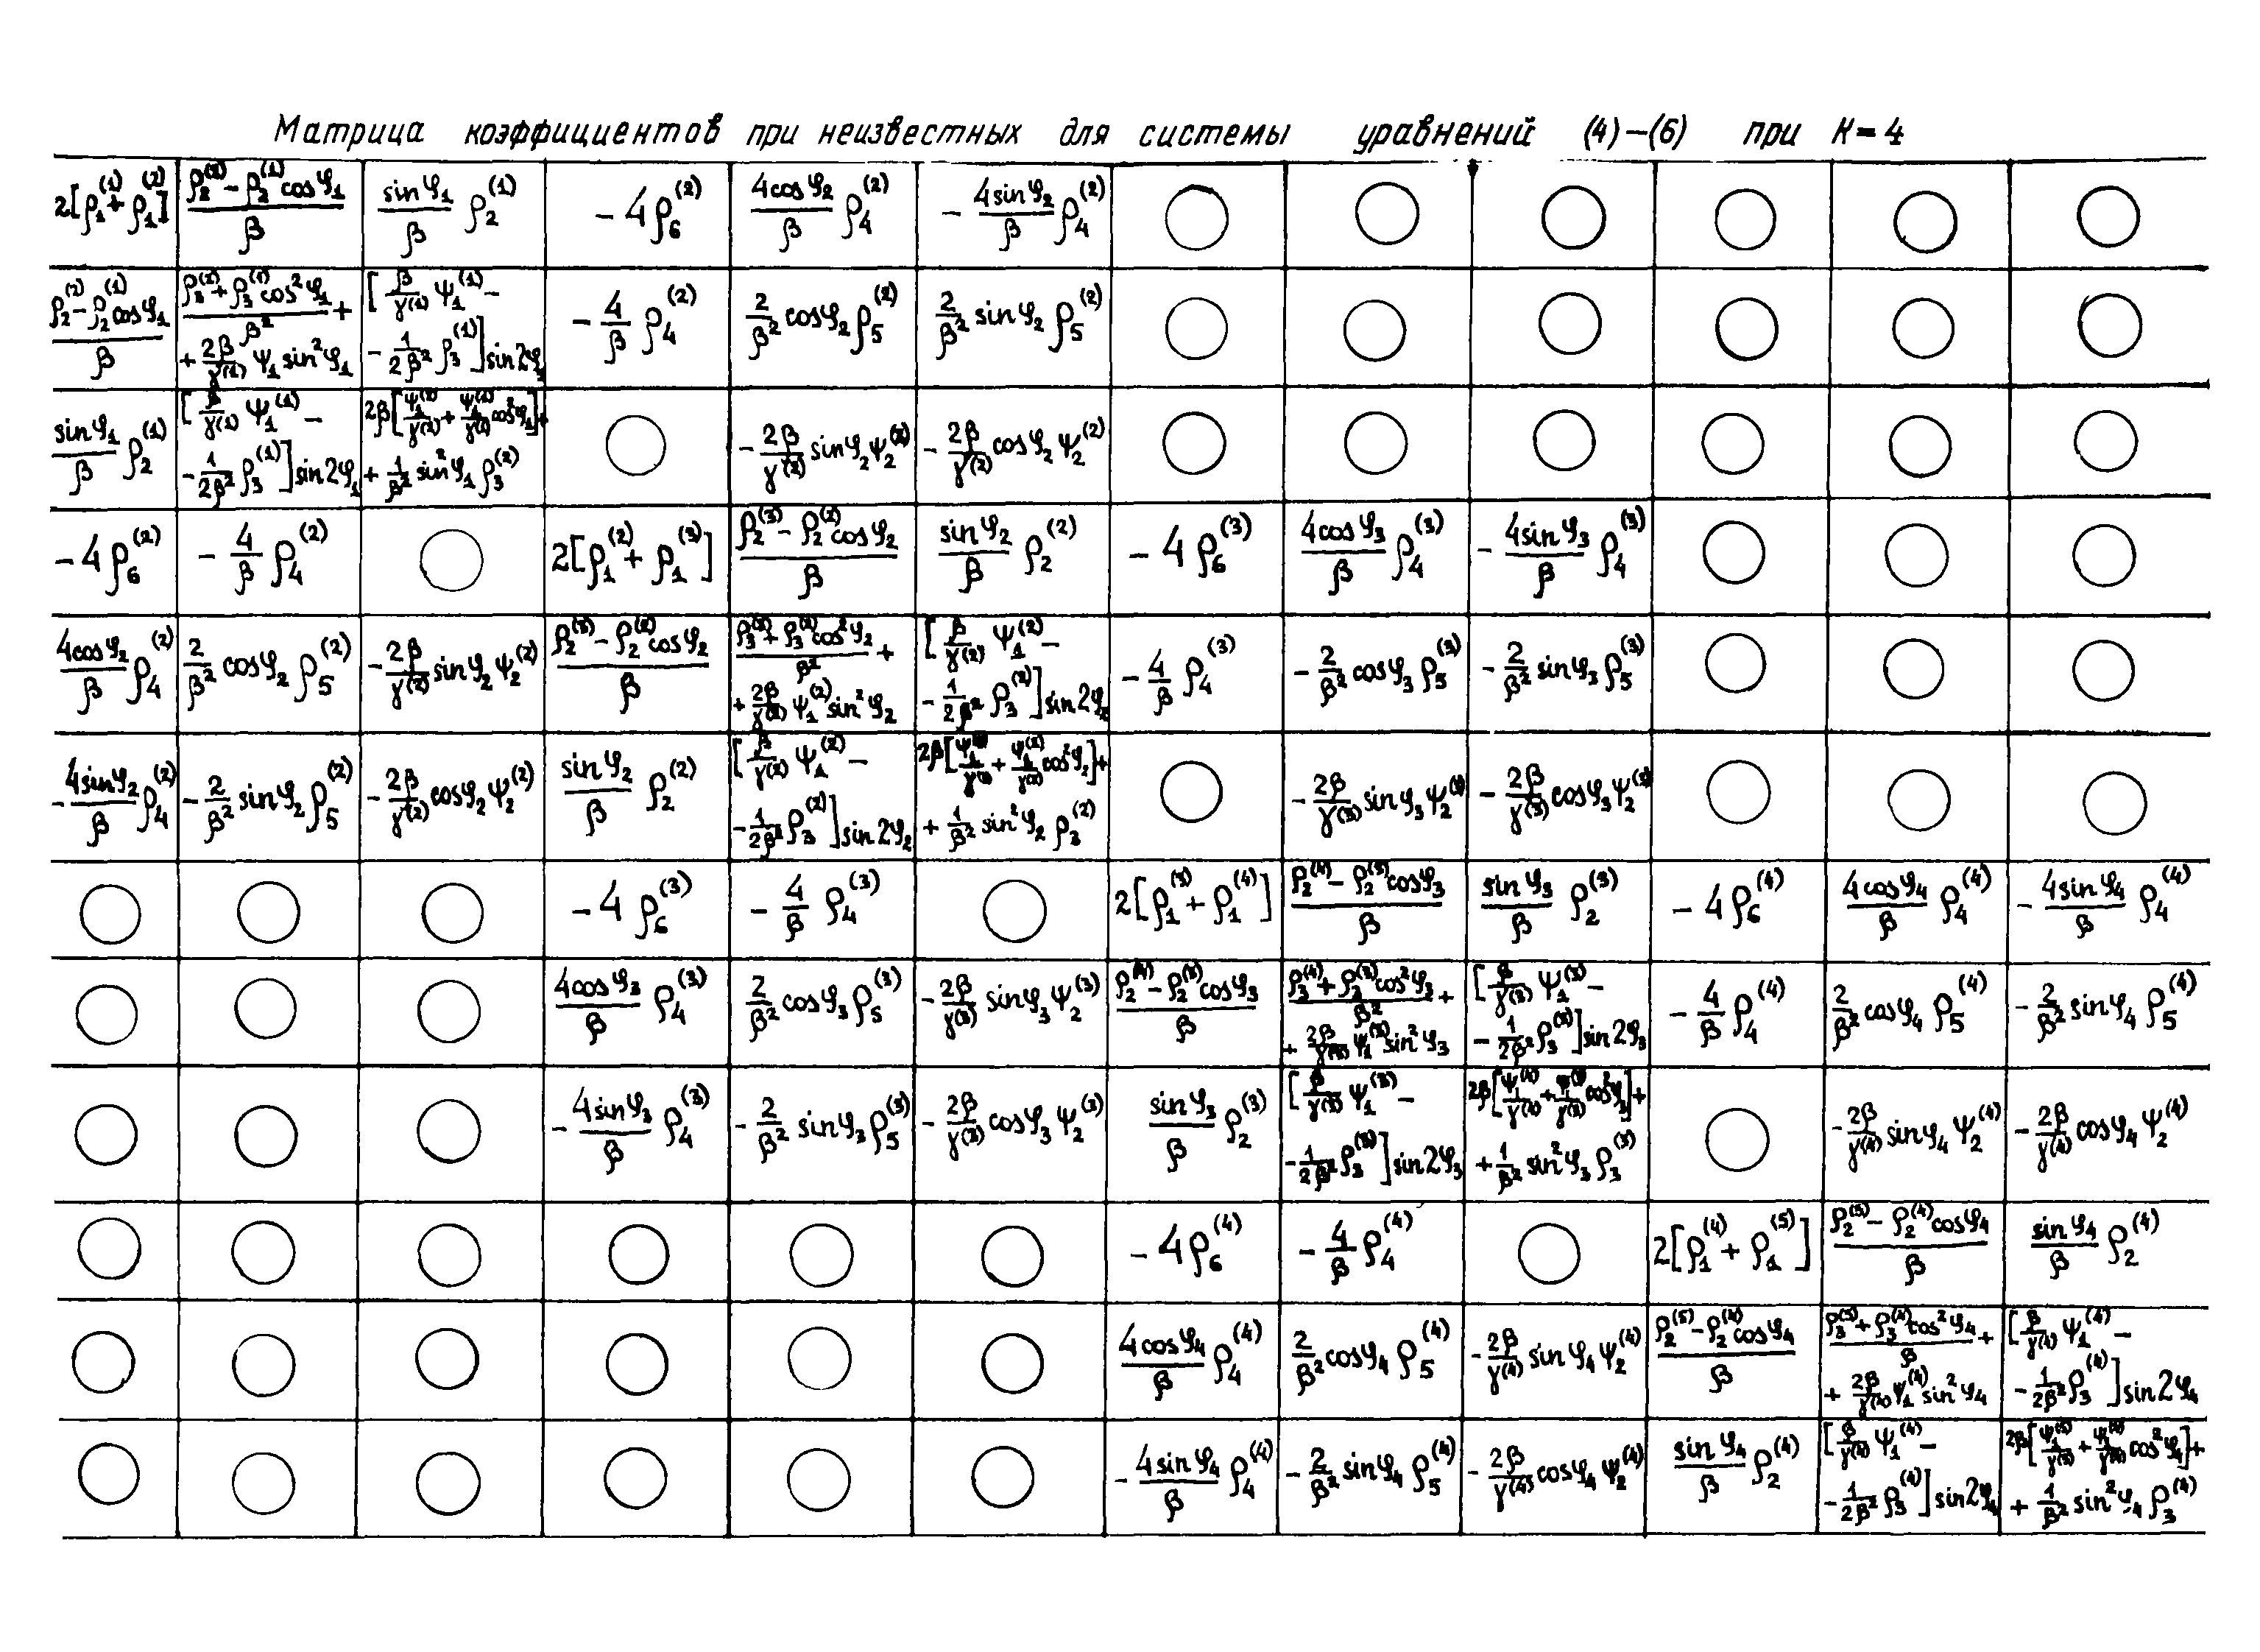 Матрица коэффициентов при неизвестных для системы уравнений (4)–(6) при К=4
2[ρ₁⁽¹⁾+ρ₁⁽²⁾] | (ρ₂⁽²⁾−ρ₂⁽¹⁾cosφ₁)/β | sinφ₁/β ρ₂⁽¹⁾ | −4ρ₆⁽²⁾ | 4cosφ₂/β ρ₄⁽²⁾ | −4sinφ₂/β ρ₄⁽²⁾ | 0 | 0 | 0 | 0 | 0 | 0
(ρ₂⁽²⁾−ρ₂⁽¹⁾cosφ₁)/β | (ρ₃⁽²⁾+ρ₃⁽¹⁾cos²φ₁)/β² + 2β/γ⁽¹⁾ ψ₁sin²φ₁ | [β/γ⁽¹⁾ ψ₁⁽¹⁾ − 1/2β² ρ₃⁽¹⁾]sin2φ₁ | −4/β ρ₄⁽²⁾ | 2/β² cosφ₂ρ₅⁽²⁾ | 2/β² sinφ₂ρ₅⁽²⁾ | 0 | 0 | 0 | 0 | 0 | 0
sinφ₁/β ρ₂⁽¹⁾ | [β/γ⁽¹⁾ ψ₁⁽¹⁾ − 1/2β² ρ₃⁽¹⁾]sin2φ₁ | 2β[ψ₁⁽²⁾/γ⁽²⁾ + ψ₁⁽¹⁾/γ⁽¹⁾ cos²φ₁] + 1/β² sin²φ₁ρ₃⁽²⁾ | 0 | −2β/γ⁽²⁾ sinφ₂ψ₂⁽²⁾ | −2β/γ⁽²⁾ cosφ₂ψ₂⁽²⁾ | 0 | 0 | 0 | 0 | 0 | 0
−4ρ₆⁽²⁾ | −4/β ρ₄⁽²⁾ | 0 | 2[ρ₁⁽²⁾+ρ₁⁽³⁾] | (ρ₂⁽³⁾−ρ₂⁽²⁾cosφ₂)/β | sinφ₂/β ρ₂⁽²⁾ | −4ρ₆⁽³⁾ | 4cosφ₃/β ρ₄⁽³⁾ | −4sinφ₃/β ρ₄⁽³⁾ | 0 | 0 | 0
4cosφ₂/β ρ₄⁽²⁾ | 2/β² cosφ₂ρ₅⁽²⁾ | −2β/γ⁽²⁾ sinφ₂ψ₂⁽²⁾ | (ρ₂⁽³⁾−ρ₂⁽²⁾cosφ₂)/β | (ρ₃⁽³⁾+ρ₃⁽²⁾cos²φ₂)/β² + 2β/γ⁽²⁾ ψ₁⁽²⁾sin²φ₂ | [β/γ⁽²⁾ ψ₁⁽²⁾ − 1/2β² ρ₃⁽²⁾]sin2φ₂ | −4/β ρ₄⁽³⁾ | −2/β² cosφ₃ρ₅⁽³⁾ | −2/β² sinφ₃ρ₅⁽³⁾ | 0 | 0 | 0
−4sinφ₂/β ρ₄⁽²⁾ | −2/β² sinφ₂ρ₅⁽²⁾ | −2β/γ⁽²⁾ cosφ₂ψ₂⁽²⁾ | sinφ₂/β ρ₂⁽²⁾ | [β/γ⁽²⁾ ψ₁⁽²⁾ − 1/2β² ρ₃⁽²⁾]sin2φ₂ | 2β[ψ₁⁽³⁾/γ⁽³⁾ + ψ₁⁽²⁾/γ⁽²⁾ cos²φ₂] + 1/β² sin²φ₂ρ₃⁽²⁾ | 0 | −2β/γ⁽³⁾ sinφ₃ψ₂⁽³⁾ | −2β/γ⁽³⁾ cosφ₃ψ₂⁽³⁾ | 0 | 0 | 0
0 | 0 | 0 | −4ρ₆⁽³⁾ | −4/β ρ₄⁽³⁾ | 0 | 2[ρ₁⁽³⁾+ρ₁⁽⁴⁾] | (ρ₂⁽⁴⁾−ρ₂⁽³⁾cosφ₃)/β | sinφ₃/β ρ₂⁽³⁾ | −4ρ₆⁽⁴⁾ | 4cosφ₄/β ρ₄⁽⁴⁾ | −4sinφ₄/β ρ₄⁽⁴⁾
0 | 0 | 0 | 4cosφ₃/β ρ₄⁽³⁾ | 2/β² cosφ₃ρ₅⁽³⁾ | −2β/γ⁽³⁾ sinφ₃ψ₂⁽³⁾ | (ρ₂⁽⁴⁾−ρ₂⁽³⁾cosφ₃)/β | (ρ₃⁽⁴⁾+ρ₂⁽³⁾cos²φ₃)/β² + 2β/γ⁽³⁾ ψ₁⁽³⁾sin²φ₃ | [β/γ⁽³⁾ ψ₁⁽³⁾ − 1/2β² ρ₃⁽³⁾]sin2φ₃ | −4/β ρ₄⁽⁴⁾ | 2/β² cosφ₄ρ₅⁽⁴⁾ | −2/β² sinφ₄ρ₅⁽⁴⁾
0 | 0 | 0 | −4sinφ₃/β ρ₄⁽³⁾ | −2/β² sinφ₃ρ₅⁽³⁾ | −2β/γ⁽³⁾ cosφ₃ψ₂⁽³⁾ | sinφ₃/β ρ₂⁽³⁾ | [β/γ⁽³⁾ ψ₁⁽³⁾ − 1/2β² ρ₃⁽³⁾]sin2φ₃ | 2β[ψ₁⁽⁴⁾/γ⁽⁴⁾ + ψ₁⁽³⁾/γ⁽³⁾ cos²φ₃] + 1/β² sin²φ₃ρ₃⁽³⁾ | 0 | −2β/γ⁽⁴⁾ sinφ₄ψ₂⁽⁴⁾ | −2β/γ⁽⁴⁾ cosφ₄ψ₂⁽⁴⁾
0 | 0 | 0 | 0 | 0 | 0 | −4ρ₆⁽⁴⁾ | −4/β ρ₄⁽⁴⁾ | 0 | 2[ρ₁⁽⁴⁾+ρ₁⁽⁵⁾] | (ρ₂⁽⁵⁾−ρ₂⁽⁴⁾cosφ₄)/β | sinφ₄/β ρ₂⁽⁴⁾
0 | 0 | 0 | 0 | 0 | 0 | 4cosφ₄/β ρ₄⁽⁴⁾ | 2/β² cosφ₄ρ₅⁽⁴⁾ | −2β/γ⁽⁴⁾ sinφ₄ψ₂⁽⁴⁾ | (ρ₂⁽⁵⁾−ρ₂⁽⁴⁾cosφ₄)/β | (ρ₃⁽⁵⁾+ρ₃⁽⁴⁾cos²φ₄)/β + 2β/γ⁽⁴⁾ ψ₁⁽⁴⁾sin²φ₄ | [β/γ⁽⁴⁾ ψ₁⁽⁴⁾ − 1/2β² ρ₃⁽⁴⁾]sin2φ₄
0 | 0 | 0 | 0 | 0 | 0 | −4sinφ₄/β ρ₄⁽⁴⁾ | −2/β² sinφ₄ρ₅⁽⁴⁾ | −2β/γ⁽⁴⁾ cosφ₄ψ₂⁽⁴⁾ | sinφ₄/β ρ₂⁽⁴⁾ | [β/γ⁽⁴⁾ ψ₁⁽⁴⁾ − 1/2β² ρ₃⁽⁴⁾]sin2φ₄ | 2β[ψ₁⁽⁵⁾/γ⁽⁵⁾ + ψ₁⁽⁴⁾/γ⁽⁴⁾ cos²φ₄] + 1/β² sin²φ₄ρ₃⁽⁴⁾